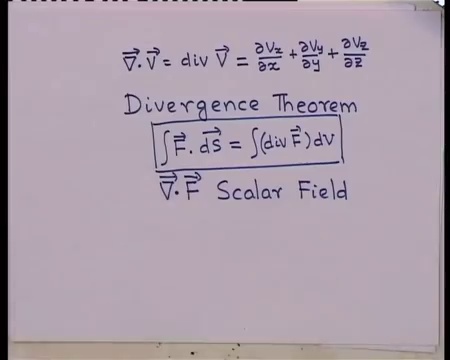 ∇⃗·V⃗ = div V⃗ = ∂Vz/∂x + ∂Vy/∂y + ∂Vz/∂z
Divergence Theorem
∫F⃗.d⃗s = ∫(div F⃗)dV
∇⃗·F⃗ Scalar Field